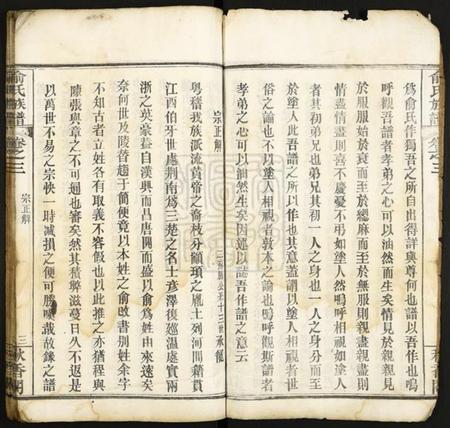 俞氏族譜
卷之三
為俞氏作獨吾之所自出得詳與尊何也譜以吾作也嗚
呼觀吾譜者孝弟之心可以油然而生矣情見於親親見
於服服始於衰而至於緦麻而至於無服無服則親盡親盡則
情盡情盡則喜不慶憂不弔如塗人然嗚呼相視如塗人
者其初兄弟也兄弟其初一人之身也一人之身分而至
於塗人吾譜之所以作也其意蓋謂以塗人相視者世
俗之論也不以塗人相視者敦本之論也嗚呼觀斯譜者
孝弟之心可以油然生矣因述以誌吾作譜之意云
宗正解
粵稽我族派流黃帝之裔枝分顓頊之胤土列河間籍貫
江西伯牙世處荊南為三楚之名士彥澤後
浙之英豪蓋自漢興而呂唐開而盛以俞為姓由來遠矣
奈何世及陵替趨于簡便竟以本姓之俞改書別姓余字
不知古者立姓各有取義不容假也以此推之亦猶程與
陳張與章之不可題也審矣然其積弊滋蔓日久不返是
以萬世不易之宗快一時減損之便可勝嘆哉故錄之譜
俞氏族譜
卷之三
宗正解
三